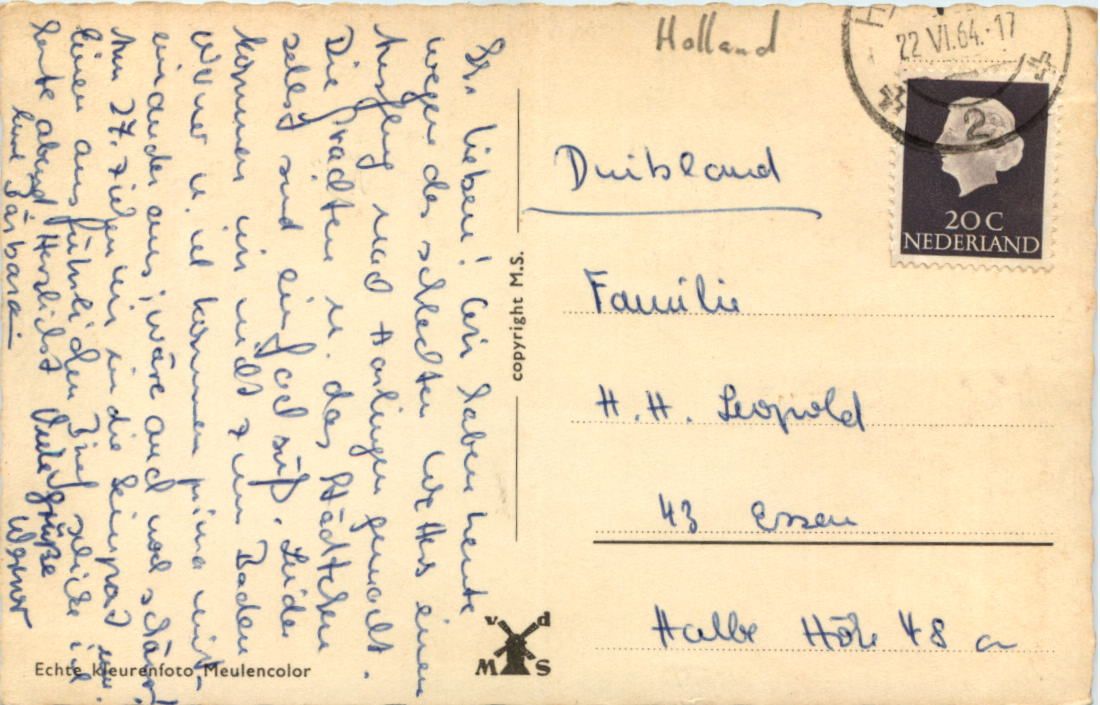 Ihr Lieben! Wir haben heute
wegen des schlechten Wetters einen
Ausflug nach Harlingen gemacht.
Die Grachten u. das Städtchen
selbst sind einfach süß. Leider
kommen wir nicht zum Baden
Werner u. ich kommen prima mit-
einander aus, wäre auch noch schöner!
Am 27. ziehen wir in die
einen ausführlichen Brief schicke ich
heute abend Herzlichst
Eure Barbara
Viele Grüße
Werner
Holland
22 VI.64.-17
2
20 C
NEDERLAND
Duitsland
Familie
H.H. Leopold
43 Essen
Halbe Höhe 48 a
copyright M.S.
v d
M S
Echte kleurenfoto Meulencolor